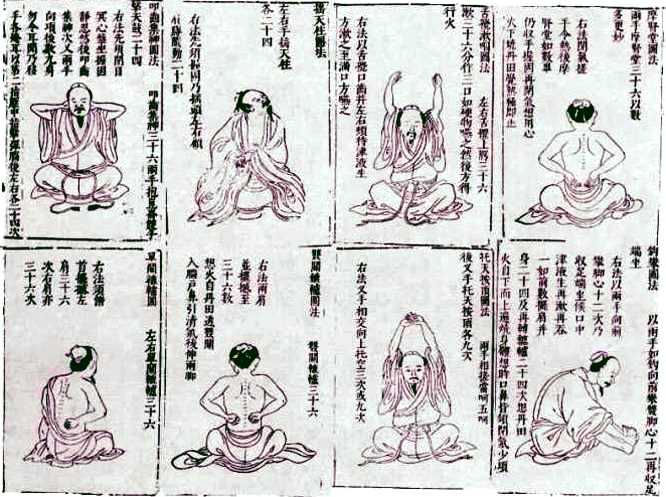 叩齒集神圖法 叩齒集神三十六兩手抱崑崙雙手
擊天鼓二十四
右法先須閉目
冥心盤坐握固
靜思然後叩齒
集神次叉兩手
向項後數九息
勿令耳聞乃移
手各掩耳以第二指壓中指擊彈腦後左右各二十四次
搖天柱圖法
左右手搖天柱
各二十四
右法先須握固乃搖頭左右顧
肩膊隨動二十四
舌攪漱咽圖法 左右舌攪上腭三十六
漱三十六分作三口如硬物嚥之然後方得
行火
右法以舌攪口齒并左右頰待津液生
方漱之至滿口方嚥之
摩腎堂圖法
兩手摩腎堂三十六以數
多更妙
右法閉氣搓
手令熱後摩
腎堂如數畢
仍收手握固再閉氣想用心
火下燒丹田覺熱極即止
單關轆轤圖法 左右單關轆轤三十六
右法須俯
首擺撼左
肩三十六
次右肩亦
三十六次
雙關轆轤圖法 雙關轆轤三十六
右法兩肩
並擺撼至
三十六數
想火自丹田透雙關
入腦戶鼻引清氣後伸兩脚
托天按頂圖法 兩手相搓當呵五呵
後叉手托天按頂各九次
右法叉手相交向上托空三次或九次
鉤攀圖法 以兩手如鉤向前攀雙脚心十二再收足
端坐
右法以兩手向前
攀脚心十二次乃
收足端坐候口中
津液生再漱再吞
一如前數擺肩并
身二十四及再轉轆轤二十四次想丹田
火自下而上遍燒身體想時口鼻皆須閉氣少頃